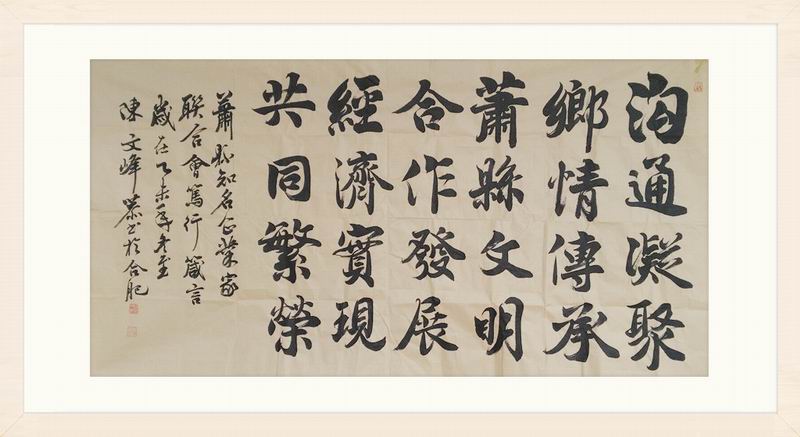 沟通凝聚
鄉情傳承
蕭縣文明
合作發展
經濟實現
共同繁榮
蕭縣知名企業家
聯合會篤行箴言
歲在乙未年冬至
陳文峰恭书於合肥